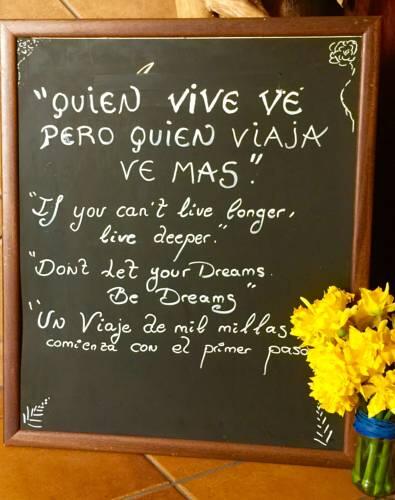 "QUIEN VIVE VÉ
PERO QUIEN VIAJA
VE MAS."
"If you can't live longer,
live deeper."
"Dont Let your Dreams.
Be Dreams"
"Un Viaje de mil millas
comienza con el primer paso